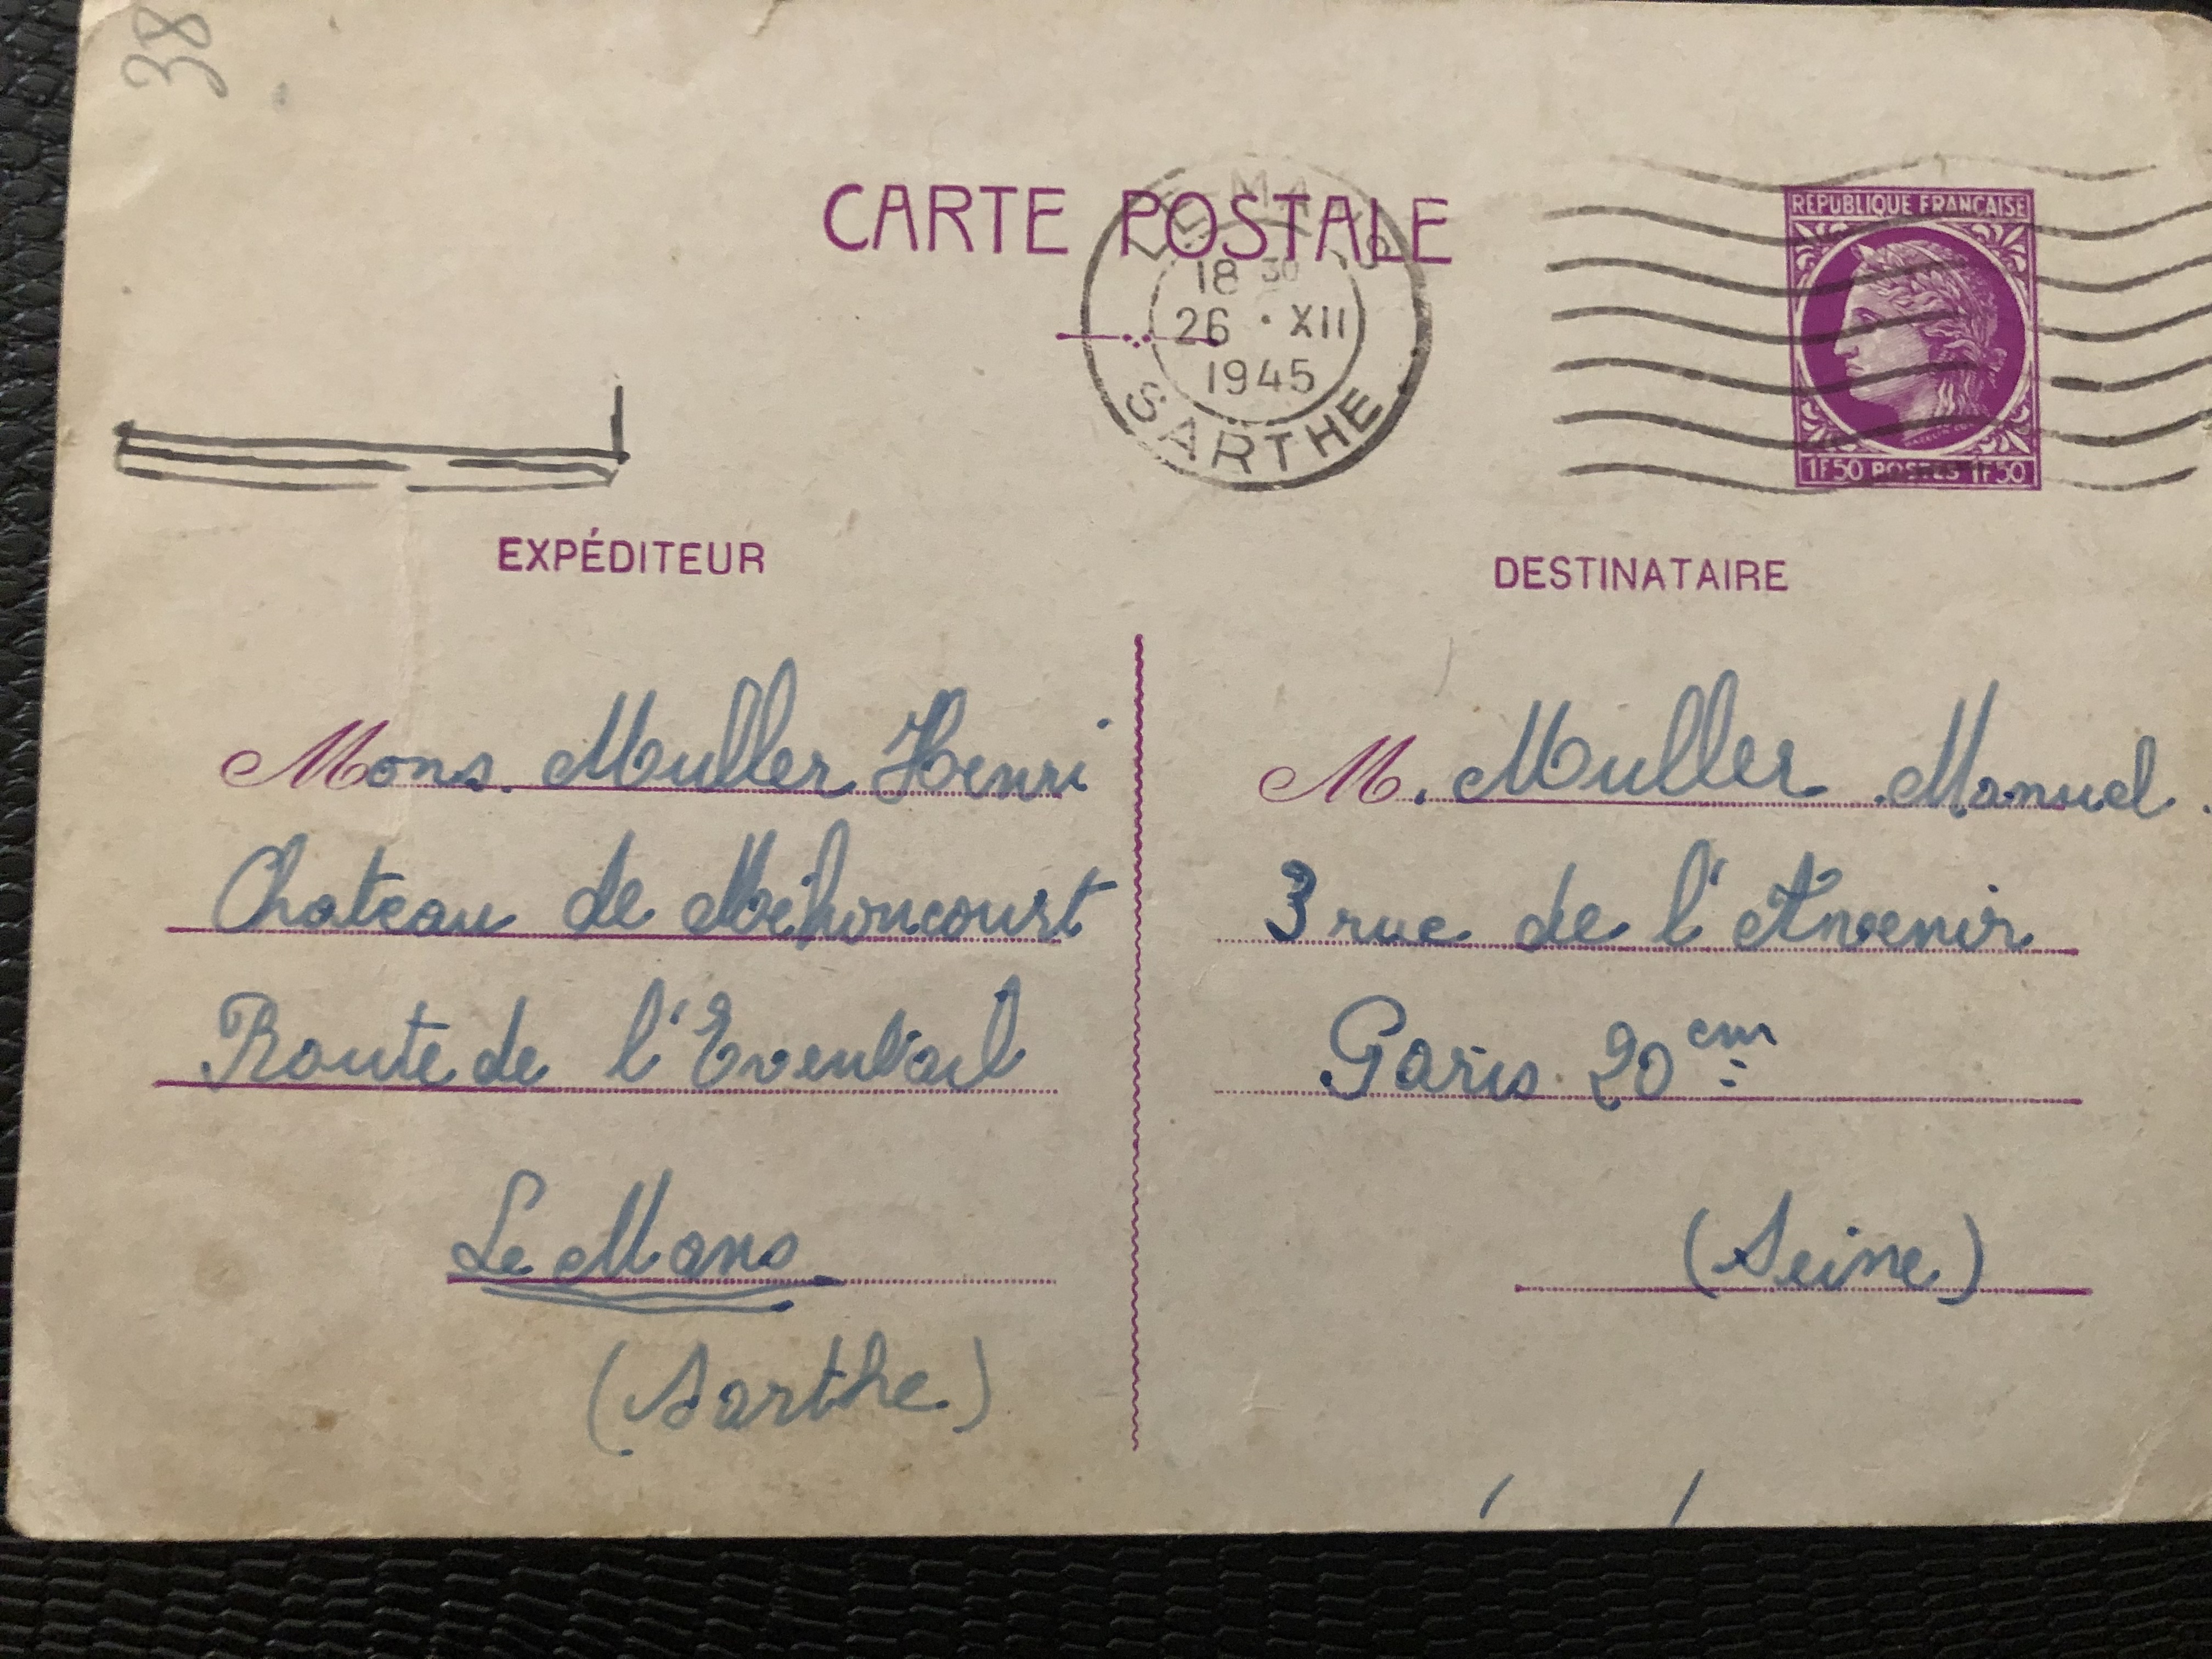 38
CARTE POSTALE
LE MANS
18 30
26 · XII
1945
SARTHE
REPUBLIQUE FRANÇAISE
1F50 POSTES 1F50
EXPÉDITEUR
Mons. Muller Henri
Chateau de Mihoncourt
Route de l'Eventail
Le Mans
(Sarthe)
DESTINATAIRE
M. Muller Manuel.
3 rue de l'Avenir
Paris 20 em
(Seine)